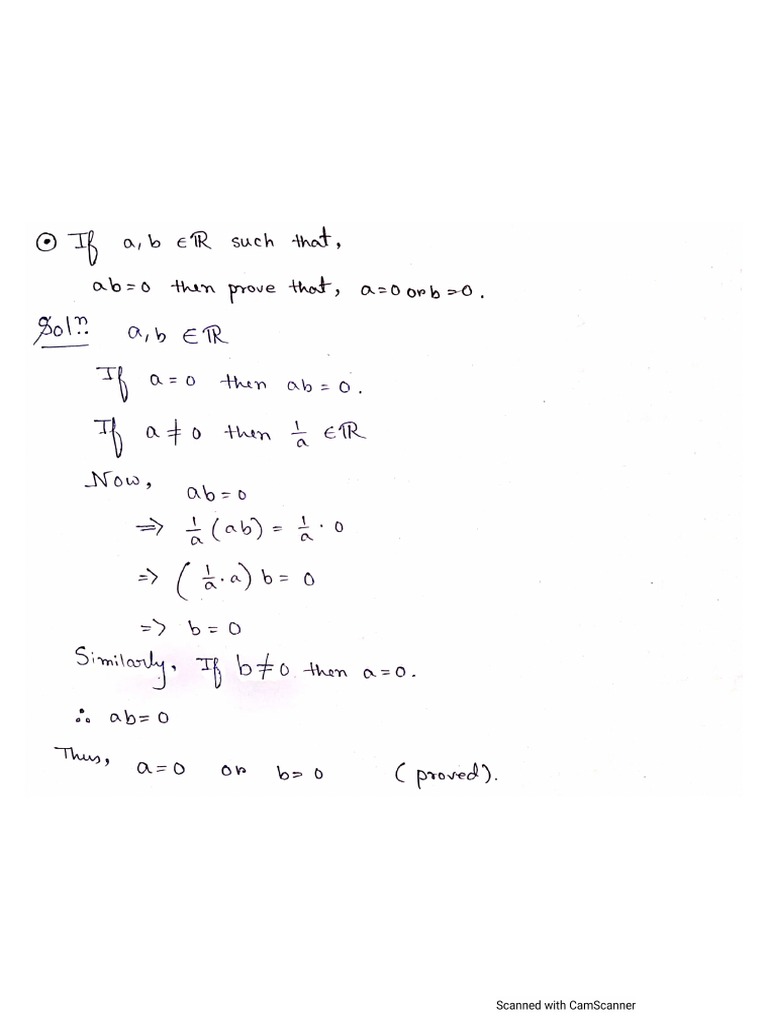 ⊙ If a, b ∈ ℝ such that,
ab = 0 then prove that, a = 0 or b = 0.
Solⁿ: a, b ∈ ℝ
If a = 0 then ab = 0.
If a ≠ 0 then 1/a ∈ ℝ
Now,
ab = 0
⇒ 1/a (ab) = 1/a · 0
⇒ (1/a · a) b = 0
⇒ b = 0
Similarly, If b ≠ 0 then a = 0.
∴ ab = 0
Thus, a = 0 or b = 0 (proved).
Scanned with CamScanner